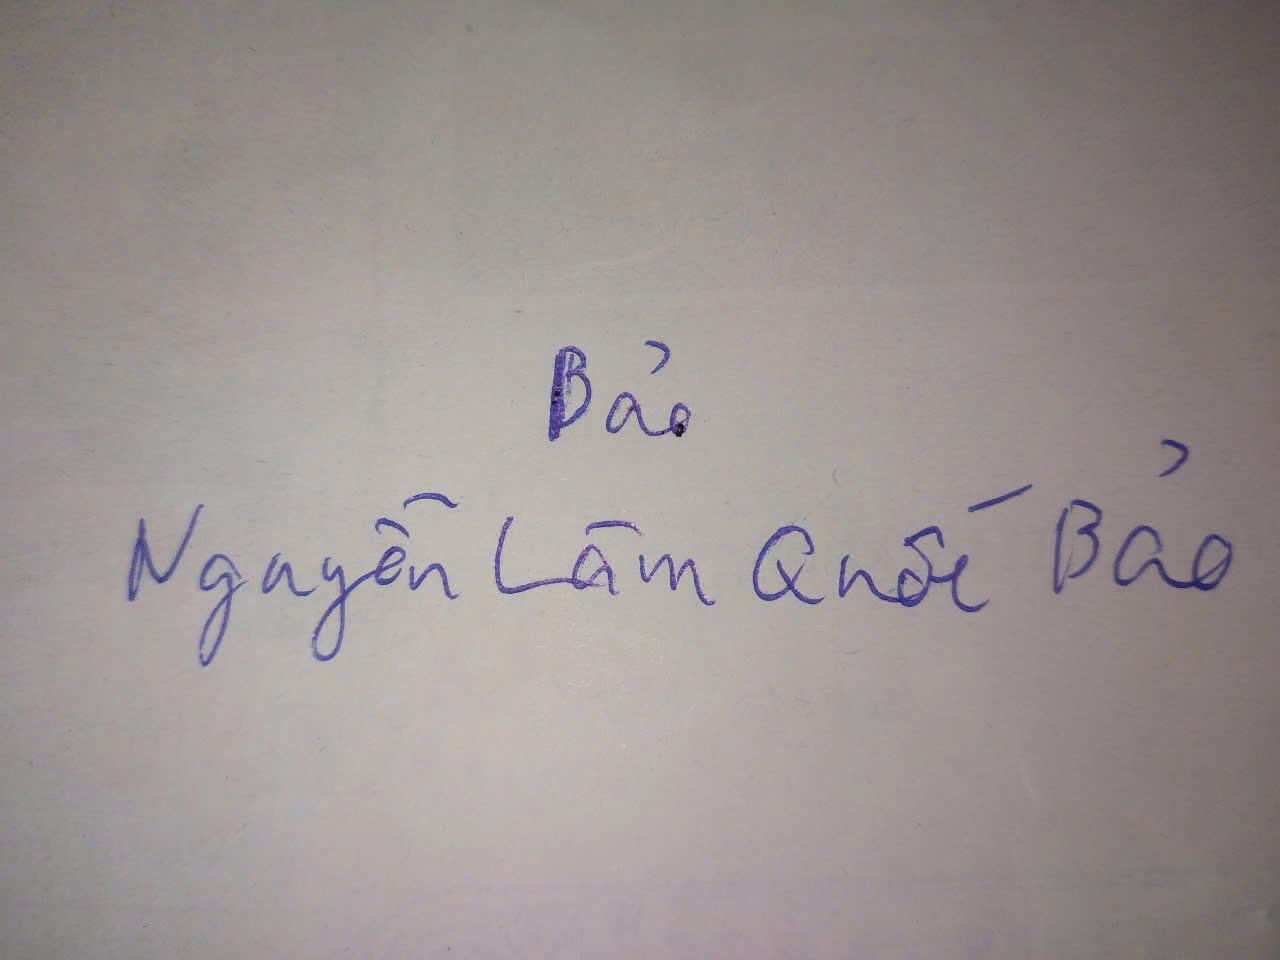 Bảo
Nguyễn Lâm Quốc Bảo